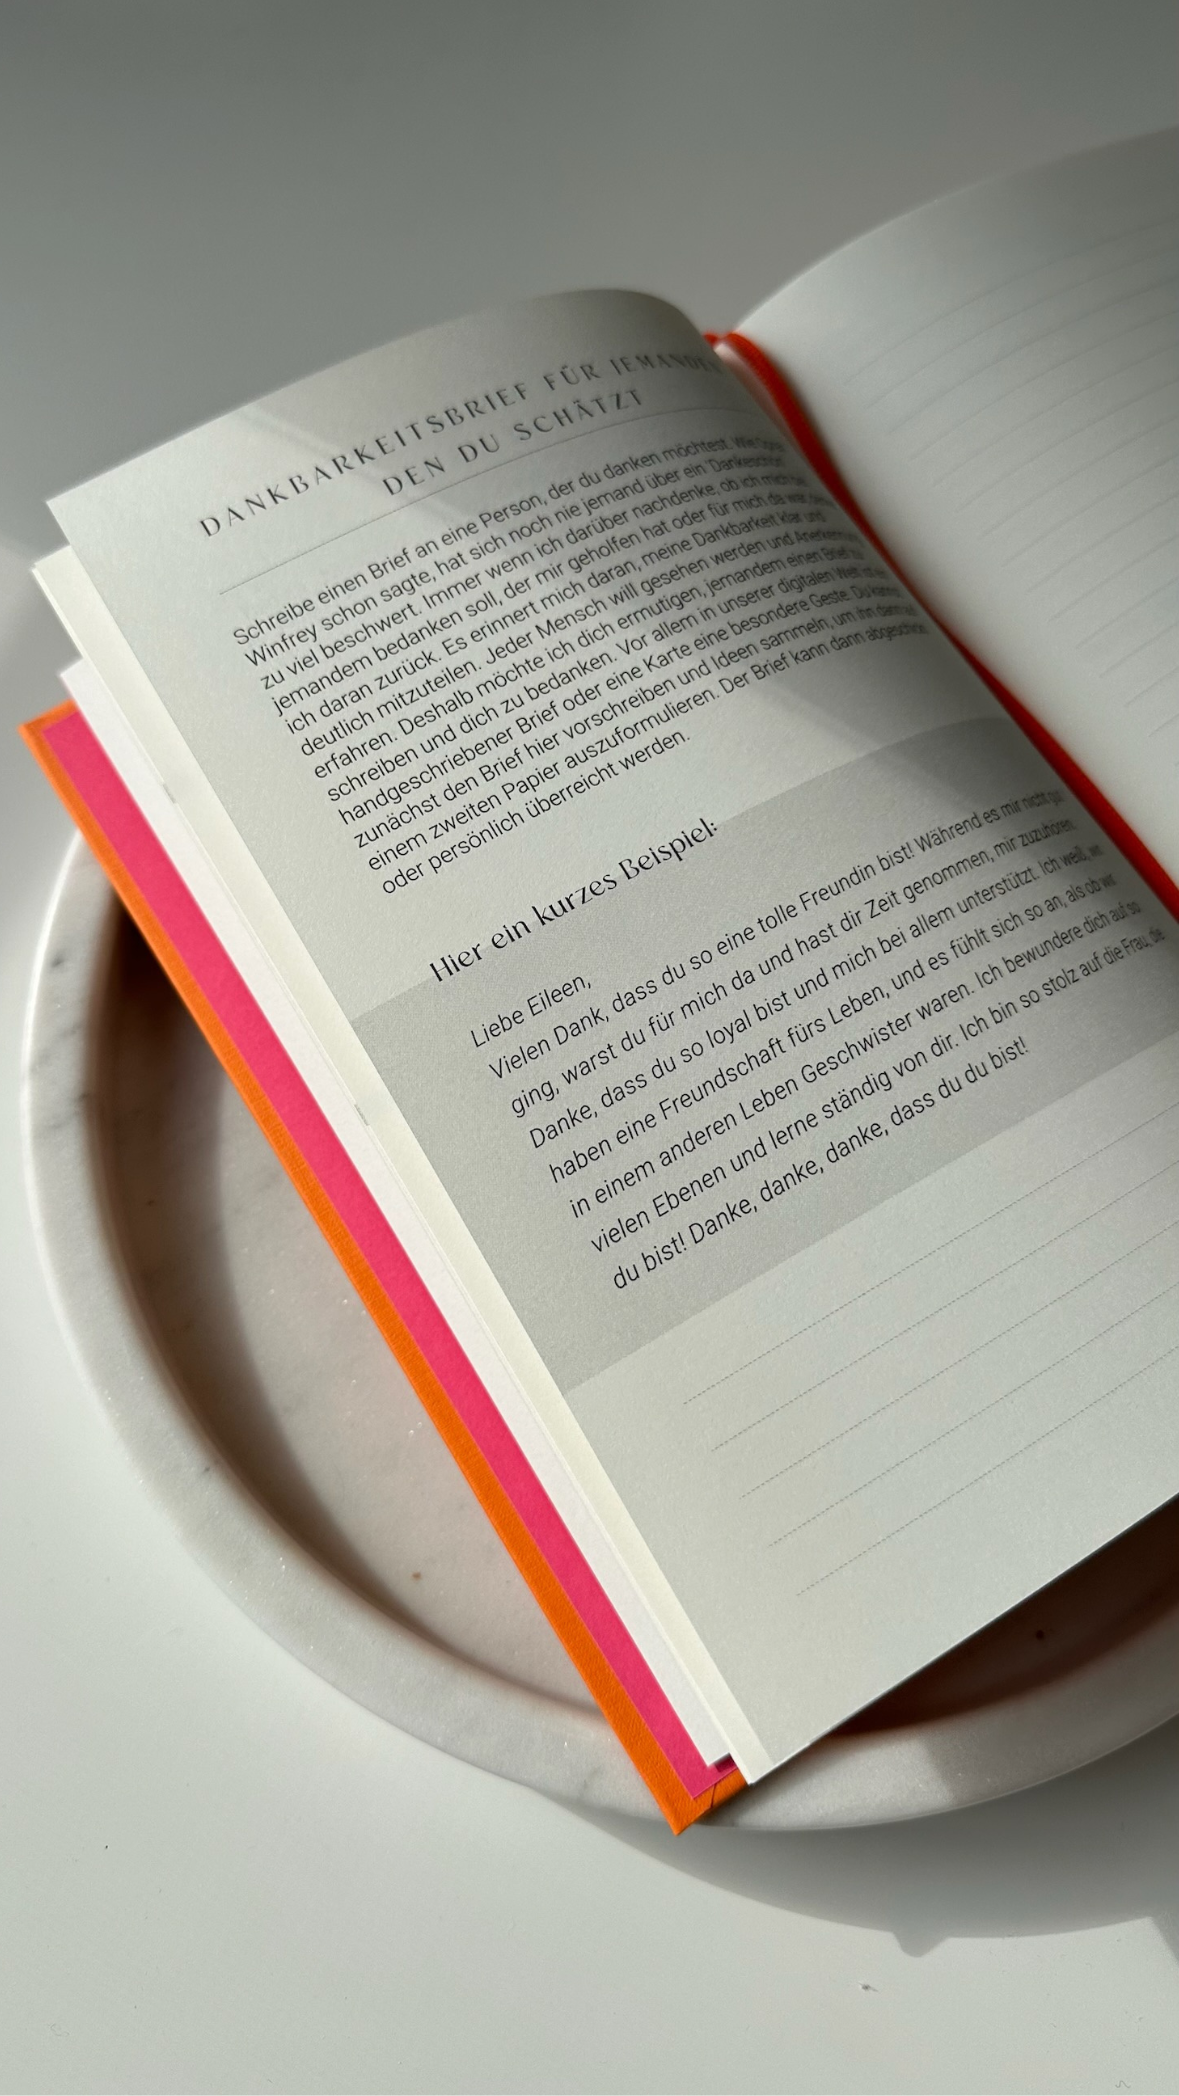 DANKBARKEITSBRIEF FÜR JEMANDEN
DEN DU SCHÄTZT
Schreibe einen Brief an eine Person, der du danken möchtest. Wie
Winfrey schon sagte, hat sich noch nie jemand über ein "Dankeschön"
zu viel beschwert. Immer wenn ich darüber nachdenke, ob ich mich bei
jemandem bedanken soll, der mir geholfen hat oder für mich da war,
ich daran zurück. Es erinnert mich daran, meine Dankbarkeit klar und
deutlich mitzuteilen. Jeder Mensch will gesehen werden und Anerkennung
erfahren. Deshalb möchte ich dich ermutigen, jemandem einen Brief zu
schreiben und dich zu bedanken. Vor allem in unserer digitalen Welt ist ein
handgeschriebener Brief oder eine Karte eine besondere Geste. Du kannst
zunächst den Brief hier vorschreiben und Ideen sammeln, um ihn dann auf
einem zweiten Papier auszuformulieren. Der Brief kann dann abgeschickt
oder persönlich überreicht werden.
Hier ein kurzes Beispiel:
Liebe Eileen,
Vielen Dank, dass du so eine tolle Freundin bist! Während es mir nicht gut
ging, warst du für mich da und hast dir Zeit genommen, mir zuzuhören.
Danke, dass du so loyal bist und mich bei allem unterstützt. Ich weiß, wir
haben eine Freundschaft fürs Leben, und es fühlt sich so an, als ob wir
in einem anderen Leben Geschwister waren. Ich bewundere dich auf so
vielen Ebenen und lerne ständig von dir. Ich bin so stolz auf die Frau, die
du bist! Danke, danke, danke, danke, dass du du bist!